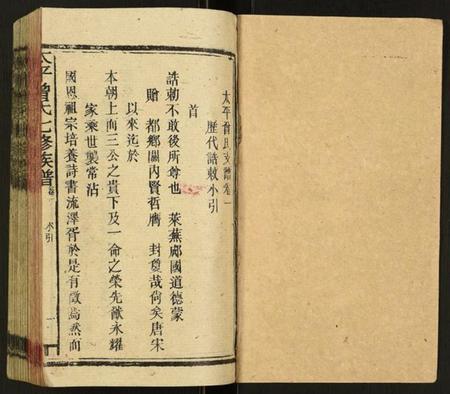 太平曾氏支譜卷一
歷代誥敕小引
誥勅不敢後所尊也 萊蕪郕國道德蒙
首
贈 都鄉關內賢哲膺 封夐哉尙矣唐宋
以來迄於
本朝上而三公之貴下及一命之榮先猷永耀
家乘世製常沾
國恩祖宗培養詩書流澤胥於是有徵焉然而
太平曾氏七修族譜
小引
一